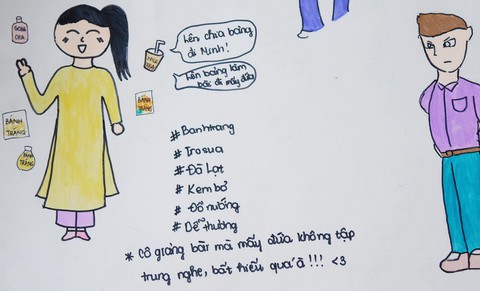 GONG
CHA
Lên chia bảng
đi Minh!
Lên bảng làm
bài đi mấy đứa
BÁNH
TRÁNG
BÁNH
TRÁNG
BÁNH
TRÁNG
#Banhtrang
#Trasua
#Đà Lạt
#Kem bơ
#Đồ nướng
#Dễ thương
* Cô giảng bài mà mấy đứa không tập
trung nghe, bất hiếu quá à !!! <3